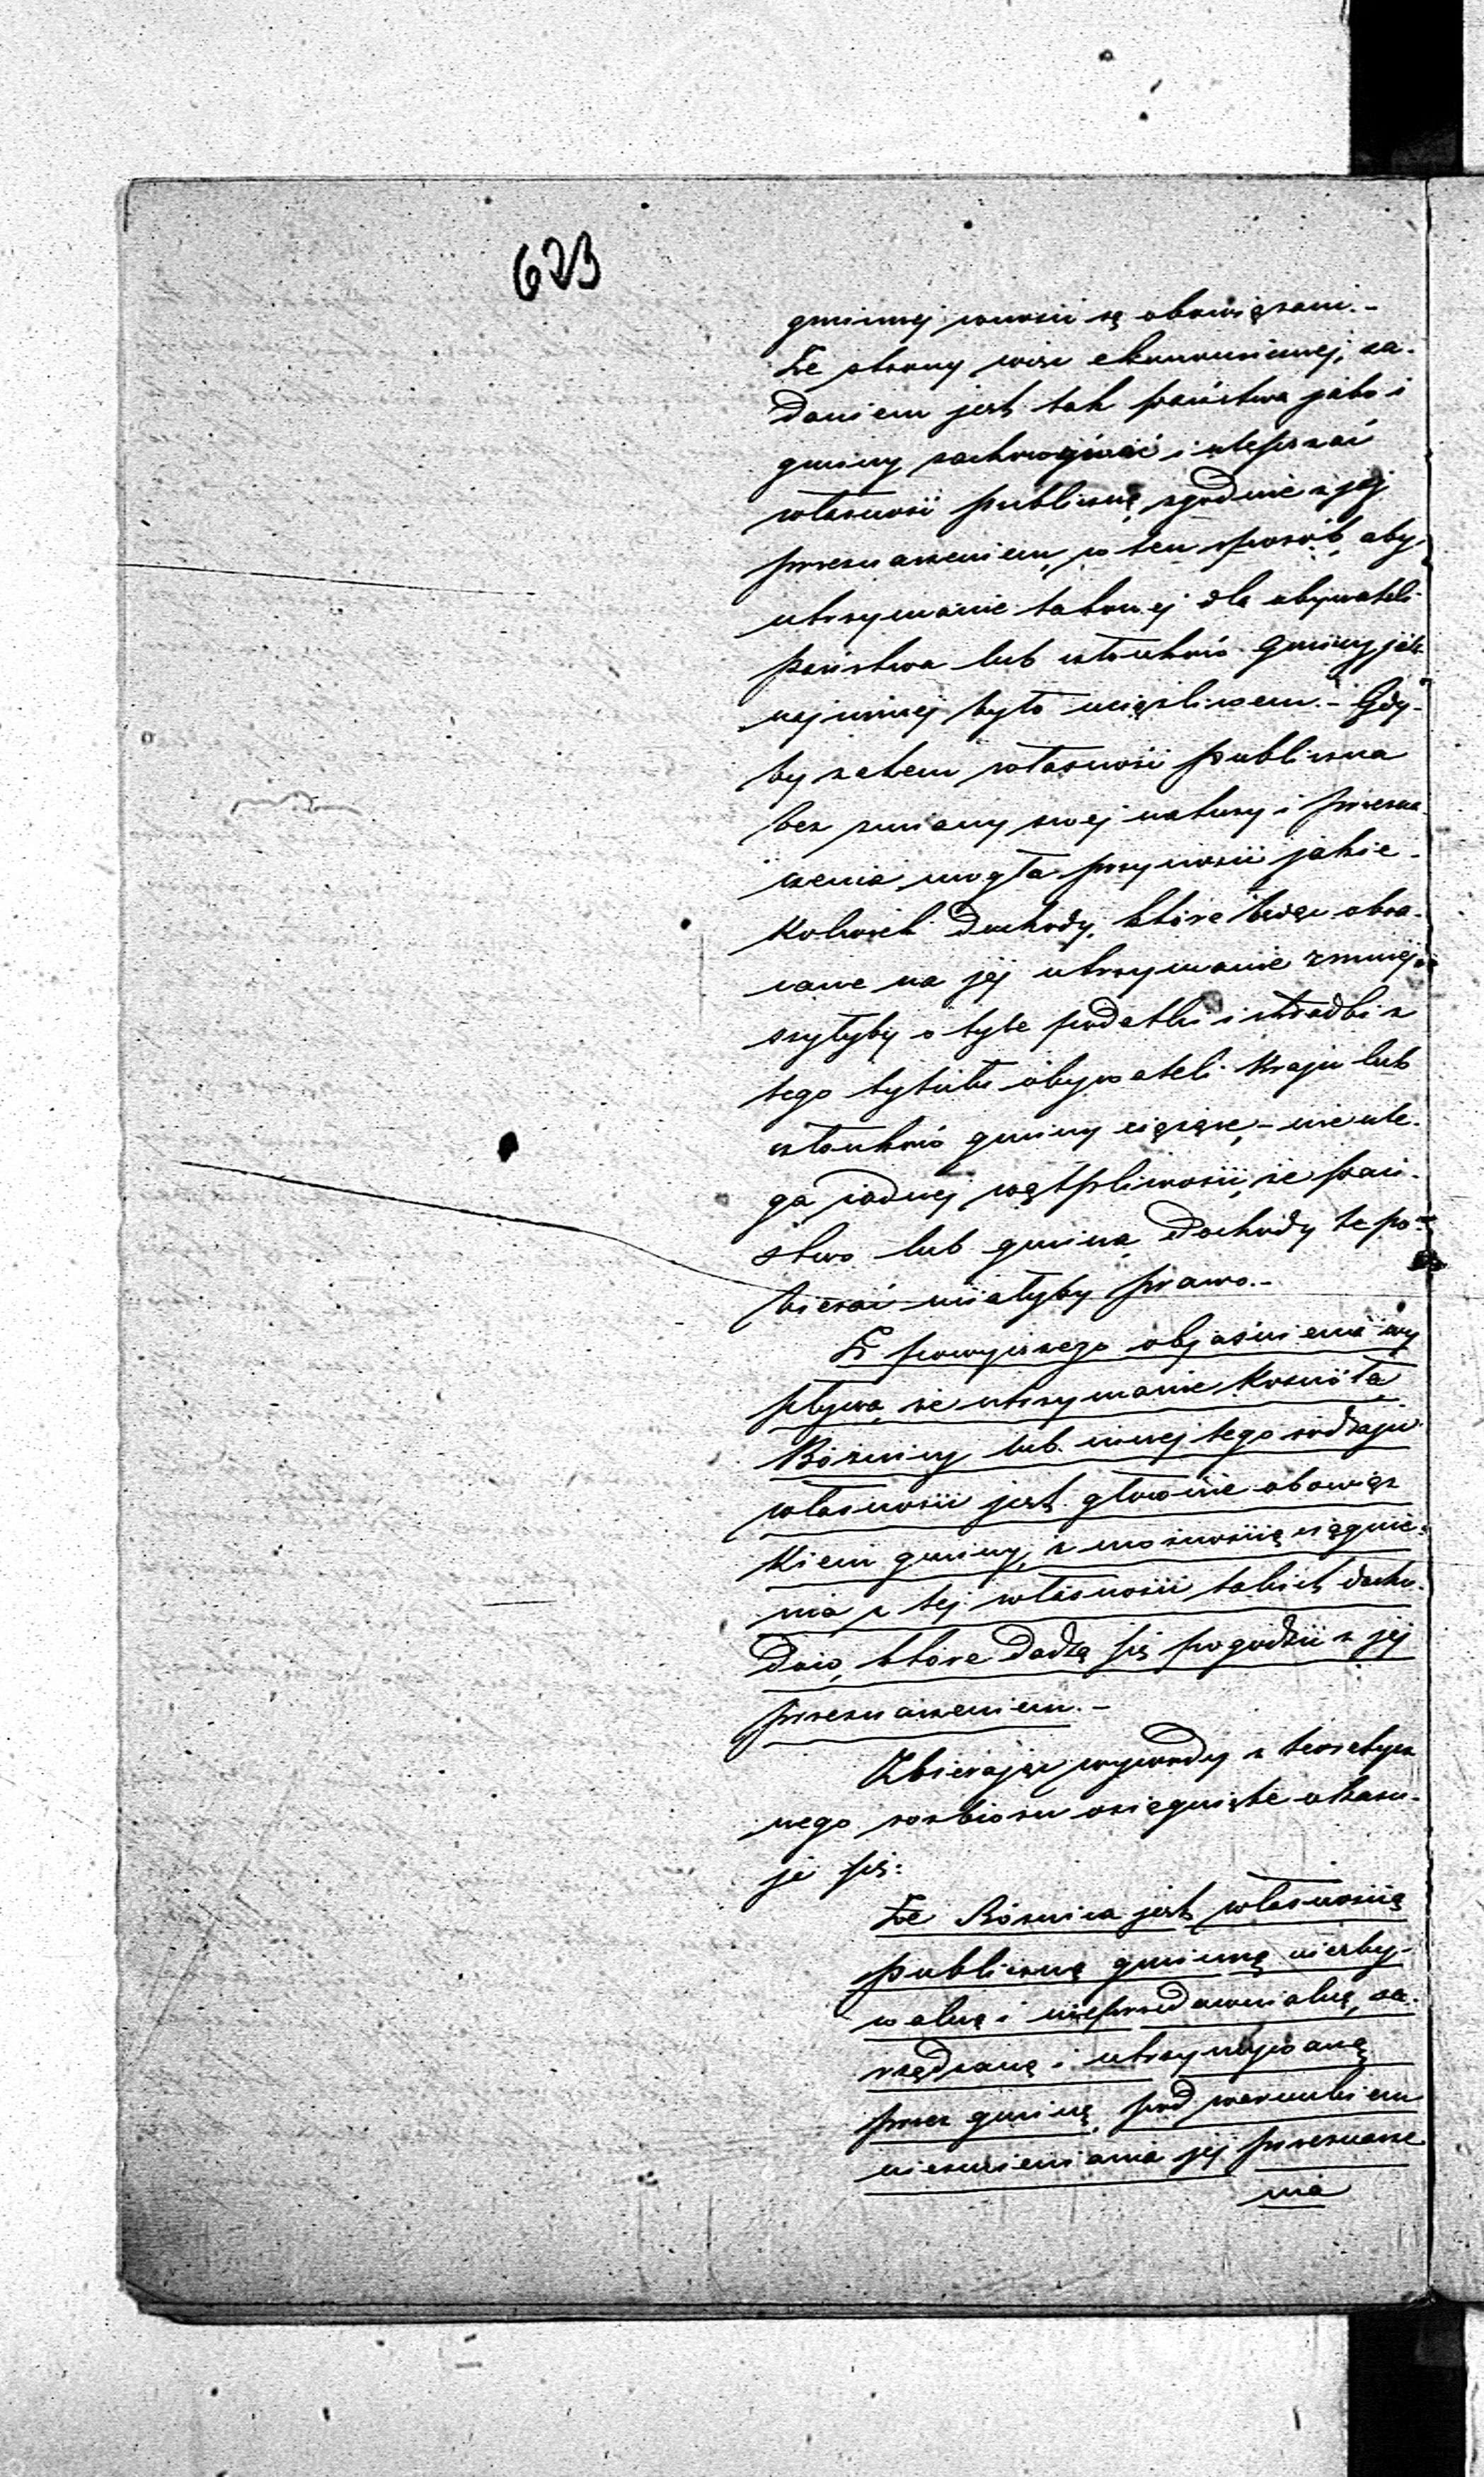 623
gminnej wnosić są obowiązani.-
Ze strony więc ekonomicznej, za-
daniem jest tak państwa jako i
gminy zachowywać i ulepszać
własność publiczną zgodnie z jej
przeznaczeniem, w ten sposób, aby
utrzymanie takowej dla obywateli
państwa lub członków gminy jak
najmniej było uciążliwem.- Gdy-
by zatem własność publiczna
bez zmiany swej natury i przezna
czenia mogła przynosić jakie-
kolwiek dochody, które będąc obra-
cane na jej utrzymanie zmniej
szyłyby o tyle podatki i składki z
tego tytułu obywateli kraju lub
członków gminy ciążące,- nie ule-
ga żadnej wątpliwości, że pań-
stwo lub gmina dochody te po-
bierać miałyby prawo.-
Z powyższego objaśnienia wy
pływa, że utrzymanie kościoła
Bóżnicy lub innej tego rodzaju
własności jest głównie obowiąz
kiem gminy, z możnością ciągnie-
nia z tej własności takich docho-
dów, które dadzą się pogodzić z jej
przeznaczeniem.-
Zbierając wywody z teoretycz
nego rozbioru osiągnięte okazu-
je się:
Że Bóżnica jest własnością
publiczną gminną niezby-
walną i nieprzedawnialną, za-
rządzaną i utrzymywaną
przez gminę, pod warunkiem
niezmieniania jej przeznacze
nia